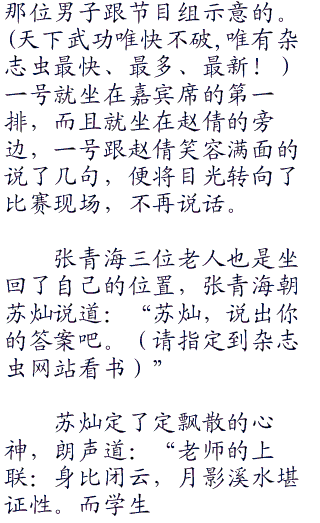 那位男子跟节目组示意的。
(天下武功唯快不破,唯有杂
志虫最快、最多、最新！)
一号就坐在嘉宾席的第一
排，而且就坐在赵倩的旁
边，一号跟赵倩笑容满面的
说了几句，便将目光转向了
比赛现场，不再说话。
张青海三位老人也是坐
回了自己的位置，张青海朝
苏灿说道：“苏灿，说出你
的答案吧。（请指定到杂志
虫网站看书）”
苏灿定了定飘散的心
神，朗声道：“老师的上
联：身比闭云，月影溪水堪
证性。而学生